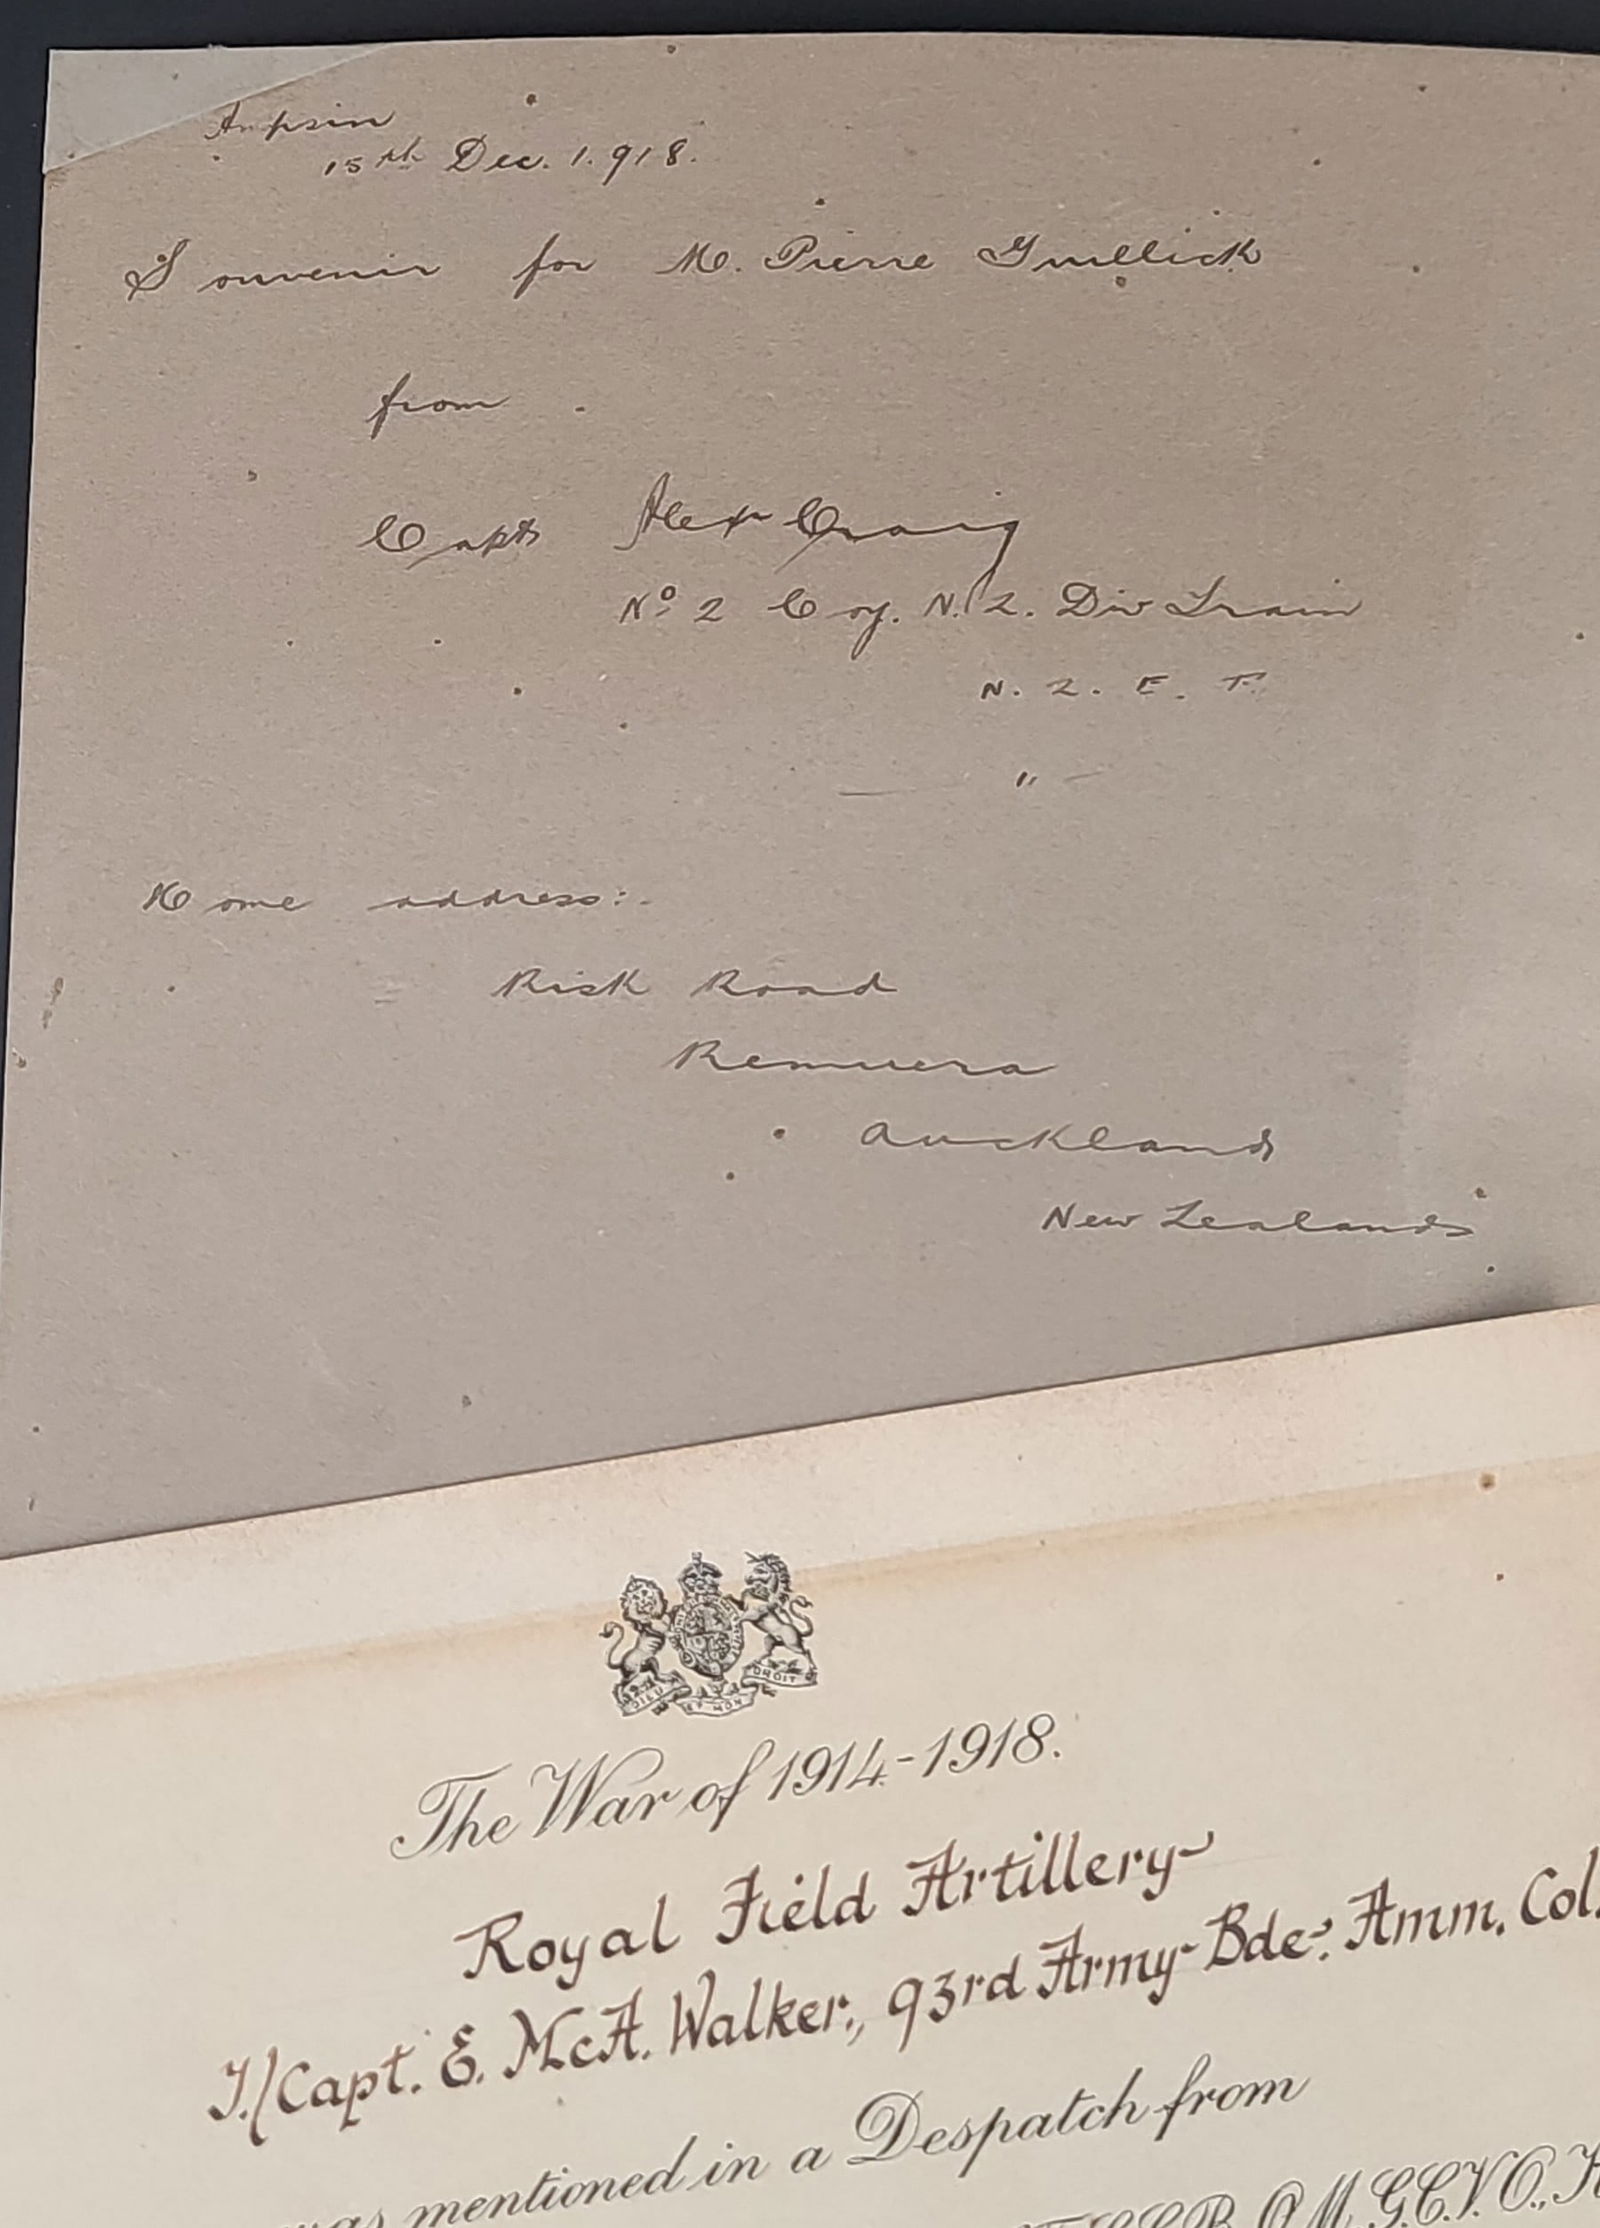 Ampsin
15th Dec. 1.918.
Souvenir for M. Pierre Gullick
from
Capt Alex Craig
No 2 Coy. N.Z. Div Train
N. Z. E. F.
"
Home address:.
Risk Road
Remuera
Auckland
New Zealand
DIEU ET MON DROIT
The War of 1914-1918.
Royal Field Artillery
T./Capt. E. McA. Walker, 93rd Army Bde. Amm. Col.
was mentioned in a Despatch from
G.C.B. O.M. G.C.V.O., K